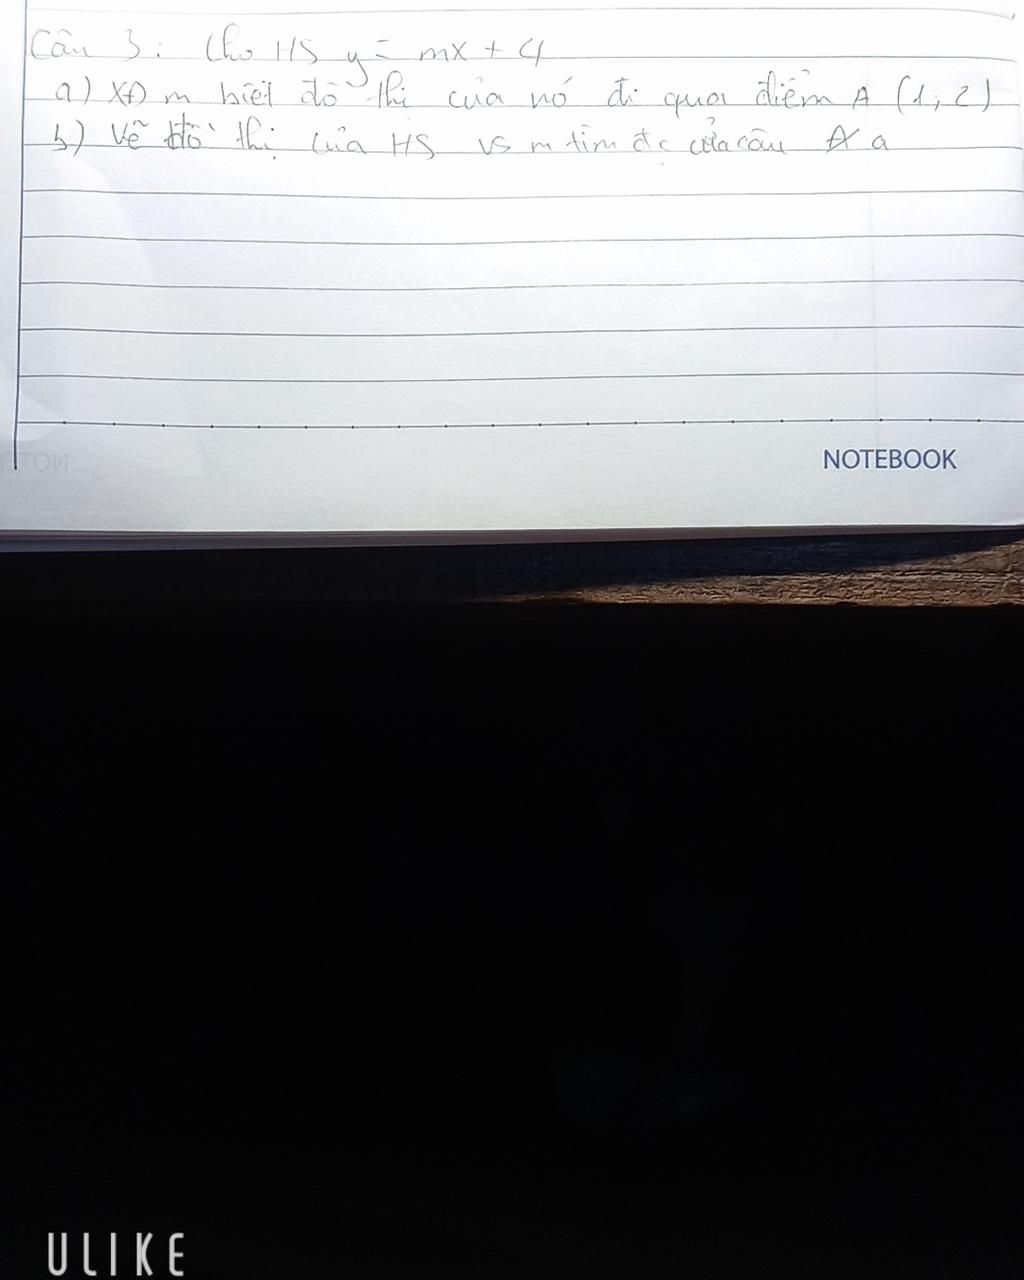 Câu 3: Cho HS y = mx + 4
a) XĐ m biết đồ thi của nó đi qua điểm A (1; 2)
b) Vẽ đồ thị của HS vs m tìm đc của câu a
NOTEBOOK
ULIKE